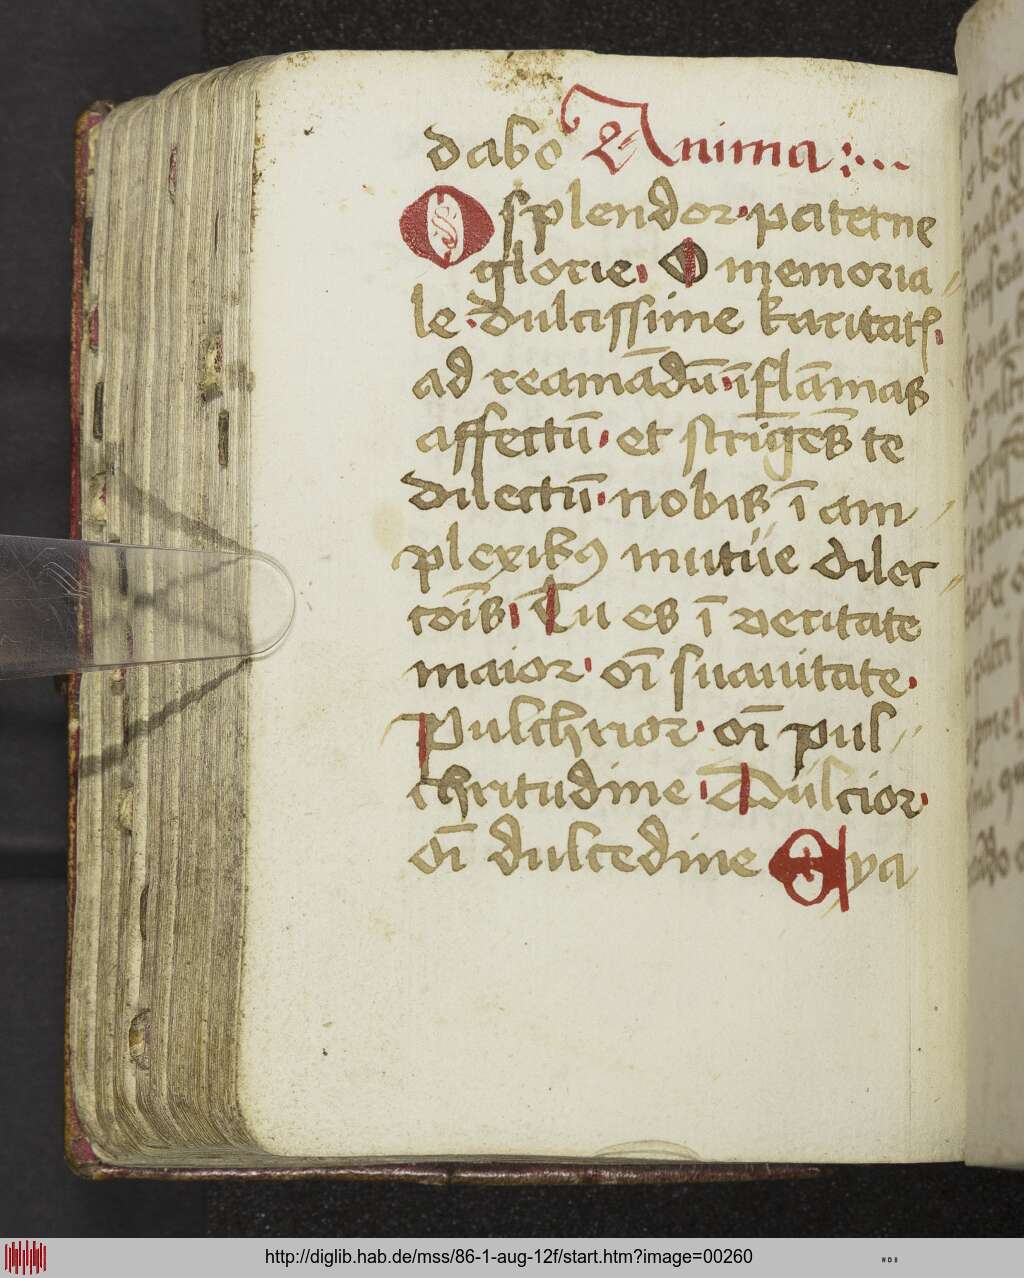 dabo Anima :···
O splendor · paterne
glorie · O memoria
le · dulcissime karitatꝭ ·
ad reamādū · īflāmas
affectū · et strīgēs te
dilectū · nobis ī am
plexibꝰ mutue dilec
cōis · Tu es ī veritate
maior · oī suauitate ·
Pulchrior · oī pul
chritudine · Dulcior ·
oī dulcedine Eya
http://diglib.hab.de/mss/86-1-aug-12f/start.htm?image=00260